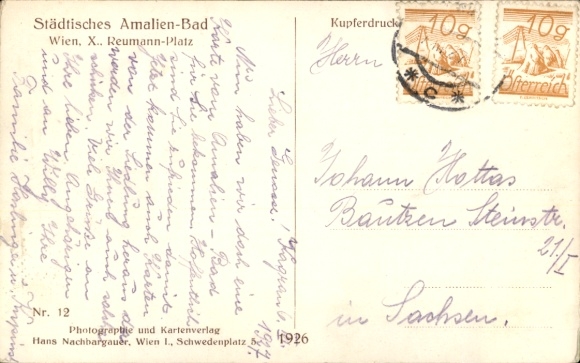 Städtisches Amalien-Bad
Wien, X., Reumann-Platz
Kupferdruck
10g
Österreich
10g
Österreich
C
Herrn
Johann Hottas
Bautzen Steinstr.
21/I
in Sachsen.
Lieber Genosse!
1927
Nun haben wir doch eine
Karte vom Amalien-Bad
für Sie bekommen. Hoffentlich
sind Sie zufrieden damit.
kommen auch Karten
von der Siedlung heraus die
werden wir Ihnen auch sofort
schicken. Viele Grüsse an
Ihre lieben Angehörigen
und an Willy Ihre
Familie
Nr. 12
Photographie und Kartenverlag
Hans Nachbargauer, Wien I., Schwedenplatz 5.
1926